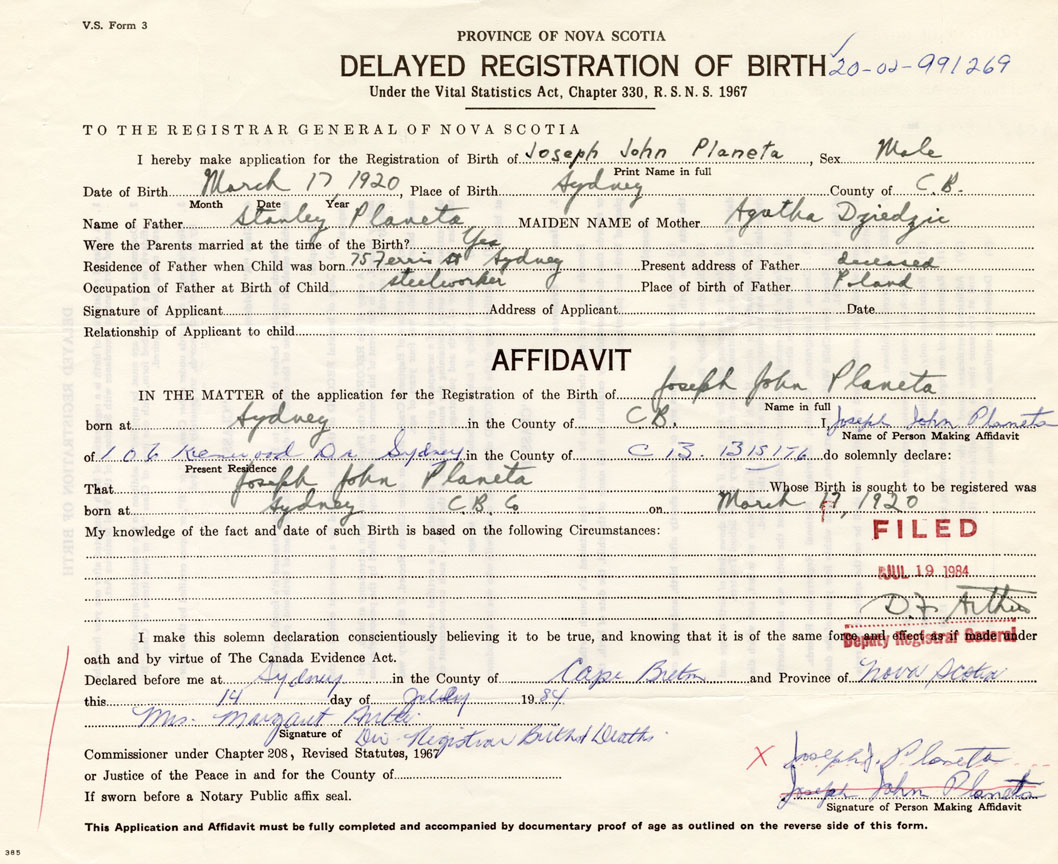 V.S. Form 3
PROVINCE OF NOVA SCOTIA
DELAYED REGISTRATION OF BIRTH 20-02-991269
Under the Vital Statistics Act, Chapter 330, R.S.N.S. 1967
TO THE REGISTRAR GENERAL OF NOVA SCOTIA
I hereby make application for the Registration of Birth of Joseph John Planeta, Sex Male
Print Name in full
Date of Birth March 17 1920, Place of Birth Sydney County of C.B.
Month Date Year
Name of Father Stanley Planeta MAIDEN NAME of Mother Agatha Dziedzic
Were the Parents married at the time of the Birth? Yes
Residence of Father when Child was born 75 Ferris St Sydney Present address of Father deceased
Occupation of Father at Birth of Child steelworker Place of birth of Father Poland
Signature of Applicant Address of Applicant Date
Relationship of Applicant to child
AFFIDAVIT
IN THE MATTER of the application for the Registration of the Birth of Joseph John Planeta
Name in full
born at Sydney in the County of C.B. I, Joseph John Planeta
Name of Person Making Affidavit
of 106 Kenwood Dr Sydney in the County of C B do solemnly declare:
Present Residence
That Joseph John Planeta Whose Birth is sought to be registered was
born at Sydney C.B. Co on March 17, 1920
My knowledge of the fact and date of such Birth is based on the following Circumstances:
FILED
JUL 19 1984
Deputy Registrar General
I make this solemn declaration conscientiously believing it to be true, and knowing that it is of the same force and effect as if made under
oath and by virtue of The Canada Evidence Act.
Declared before me at Sydney in the County of Cape Breton and Province of Nova Scotia
this 14 day of July 1984
Mrs. Margaret
Signature of Div. Registrar Births & Deaths
Commissioner under Chapter 208, Revised Statutes, 1967
or Justice of the Peace in and for the County of
If sworn before a Notary Public affix seal.
X Joseph J. Planeta
Joseph John Planeta
Signature of Person Making Affidavit
This Application and Affidavit must be fully completed and accompanied by documentary proof of age as outlined on the reverse side of this form.
385